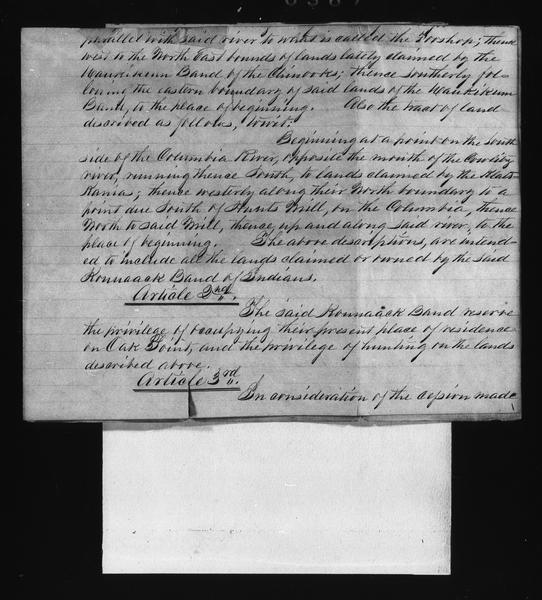 parallel with said river to what is called the Forshop; thence
west to the North East bounds of lands lately claimed by the
Waukikum Band of the Chinooks; thence southerly fol-
lowing the eastern boundary of said lands of the Waukikum
Band, to the place of beginning. Also the tract of land
described as follows, to wit:
Beginning at a point on the South
side of the Columbia River, opposite the mouth of the Cowlitz
river, running thence South, to lands claimed by the Klats-
Kanias; thence westerly along their North boundary to a
point due South of Hunts Mill, on the Columbia, thence
North to said Mill, thence, up and along said river, to the
place of beginning. The above descriptions, are intend-
ed to include all the lands claimed or owned by the said
Konnaack Band of Indians.
Article 2nd.
The said Konnaack Band reserve
the privilege of occupying their present place of residence
on Oak Point, and the privilege of hunting on the lands
described above.
Article 3rd.
In consideration of the cession made